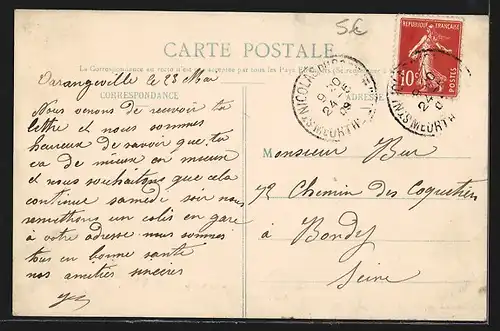 5€
CARTE POSTALE
La Correspondance au recto n'est pas acceptée par tous les Pays
REPUBLIQUE FRANCAISE
10c
POSTES
Varangéville le 23 Mai
CORRESPONDANCE
ADRESSE
ST NICOLAS DU PORT
MEURTHE
24
09
Nous venons de recevoir ta
lettre et nous sommes
heureux de savoir que tu
va de mieux en mieux
et nous souhaitons que cela
continue samedi soir nous
remettrons un colis en gare
à votre adresse nous sommes
tous en bonne santé
nos amitiés sincères
Monsieur Bur
72 Chemin des Coquetiers
à Bondy
Seine